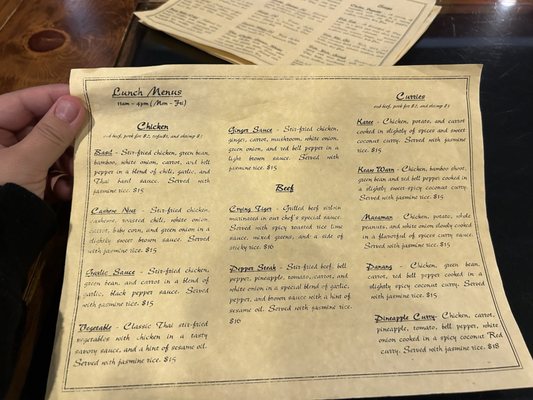 Lunch Menus
11am - 4pm (Mon - Fri)
Chicken
add beef, pork for $2, and shrimp $3
Basil - Stir-fried chicken, green bean,
bamboo, white onion, carrot, and bell
pepper in a blend of chili, garlic, and
Thai basil sauce. Served with
jasmine rice. $15
Cashew Nut - Stir-fried chicken,
cashews, roasted chili, white onion,
carrot, baby corn, and green onion in a
slightly sweet brown sauce. Served
with jasmine rice. $15
Garlic Sauce - Stir-fried chicken,
green bean, and carrot in a blend of
garlic, black pepper sauce. Served
with jasmine rice. $15
Vegetable - Classic Thai stir-fried
vegetables with chicken in a tasty
savory sauce, and a hint of sesame oil.
Served with jasmine rice. $15
Ginger Sauce - Stir-fried chicken,
ginger, carrot, mushroom, white onion,
green onion, and red bell pepper in a
light brown sauce. Served with
jasmine rice. $15
Beef
Crying Tiger - Grilled beef sirloin
marinated in our chef's special sauce.
Served with spicy roasted rice lime
sauce, mixed greens, and a side of
sticky rice. $16
Pepper Steak - Stir-fried beef, bell
pepper, pineapple, tomato, carrot, and
white onion in a special blend of garlic,
pepper, and brown sauce with a hint of
sesame oil. Served with jasmine rice.
$16
Curries
add beef, pork for $2, and shrimp $3
Karee - Chicken, potato, and carrot
cooked in slightly of spices and sweet
coconut curry. Served with jasmine
rice. $15
Keaw Warn - Chicken, bamboo shoot,
green bean and red bell pepper cooked in
a slightly sweet-spicy coconut curry.
Served with jasmine rice. $15
Musaman - Chicken, potato, whole
peanuts, and white onion slowly cooked
in a flavorful of spices curry sauce.
Served with jasmine rice. $15
Panang - Chicken, green bean,
carrot, red bell pepper cooked in a
slightly spicy coconut curry. Served
with jasmine rice. $15
Pineapple Curry - Chicken, carrot,
pineapple, tomato, bell pepper, white
onion cooked in a spicy coconut Red
curry. Served with jasmine rice. $18